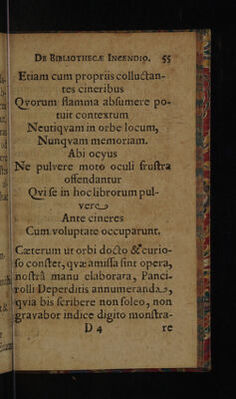 DE BIBLIOTHECÆ INCENDIO. 55
Etiam cum propriis colluctan-
tes cineribus
Qvorum flamma absumere po-
tuit contextum
Neutiqvam in orbe locum,
Nunqvam memoriam.
Abi ocyus
Ne pulvere moto oculi frustra
offendantur
Qvi se in hoc librorum pul-
vere
Ante cineres
Cum voluptate occuparunt.
Cæterum ut orbi docto & curio-
so constet, qvæ amissa sint opera,
nostrâ manu elaborata, Panci-
rolli Deperditis annumeranda,
qvia bis scribere non soleo, non
gravabor indice digito monstra-
D 4 re